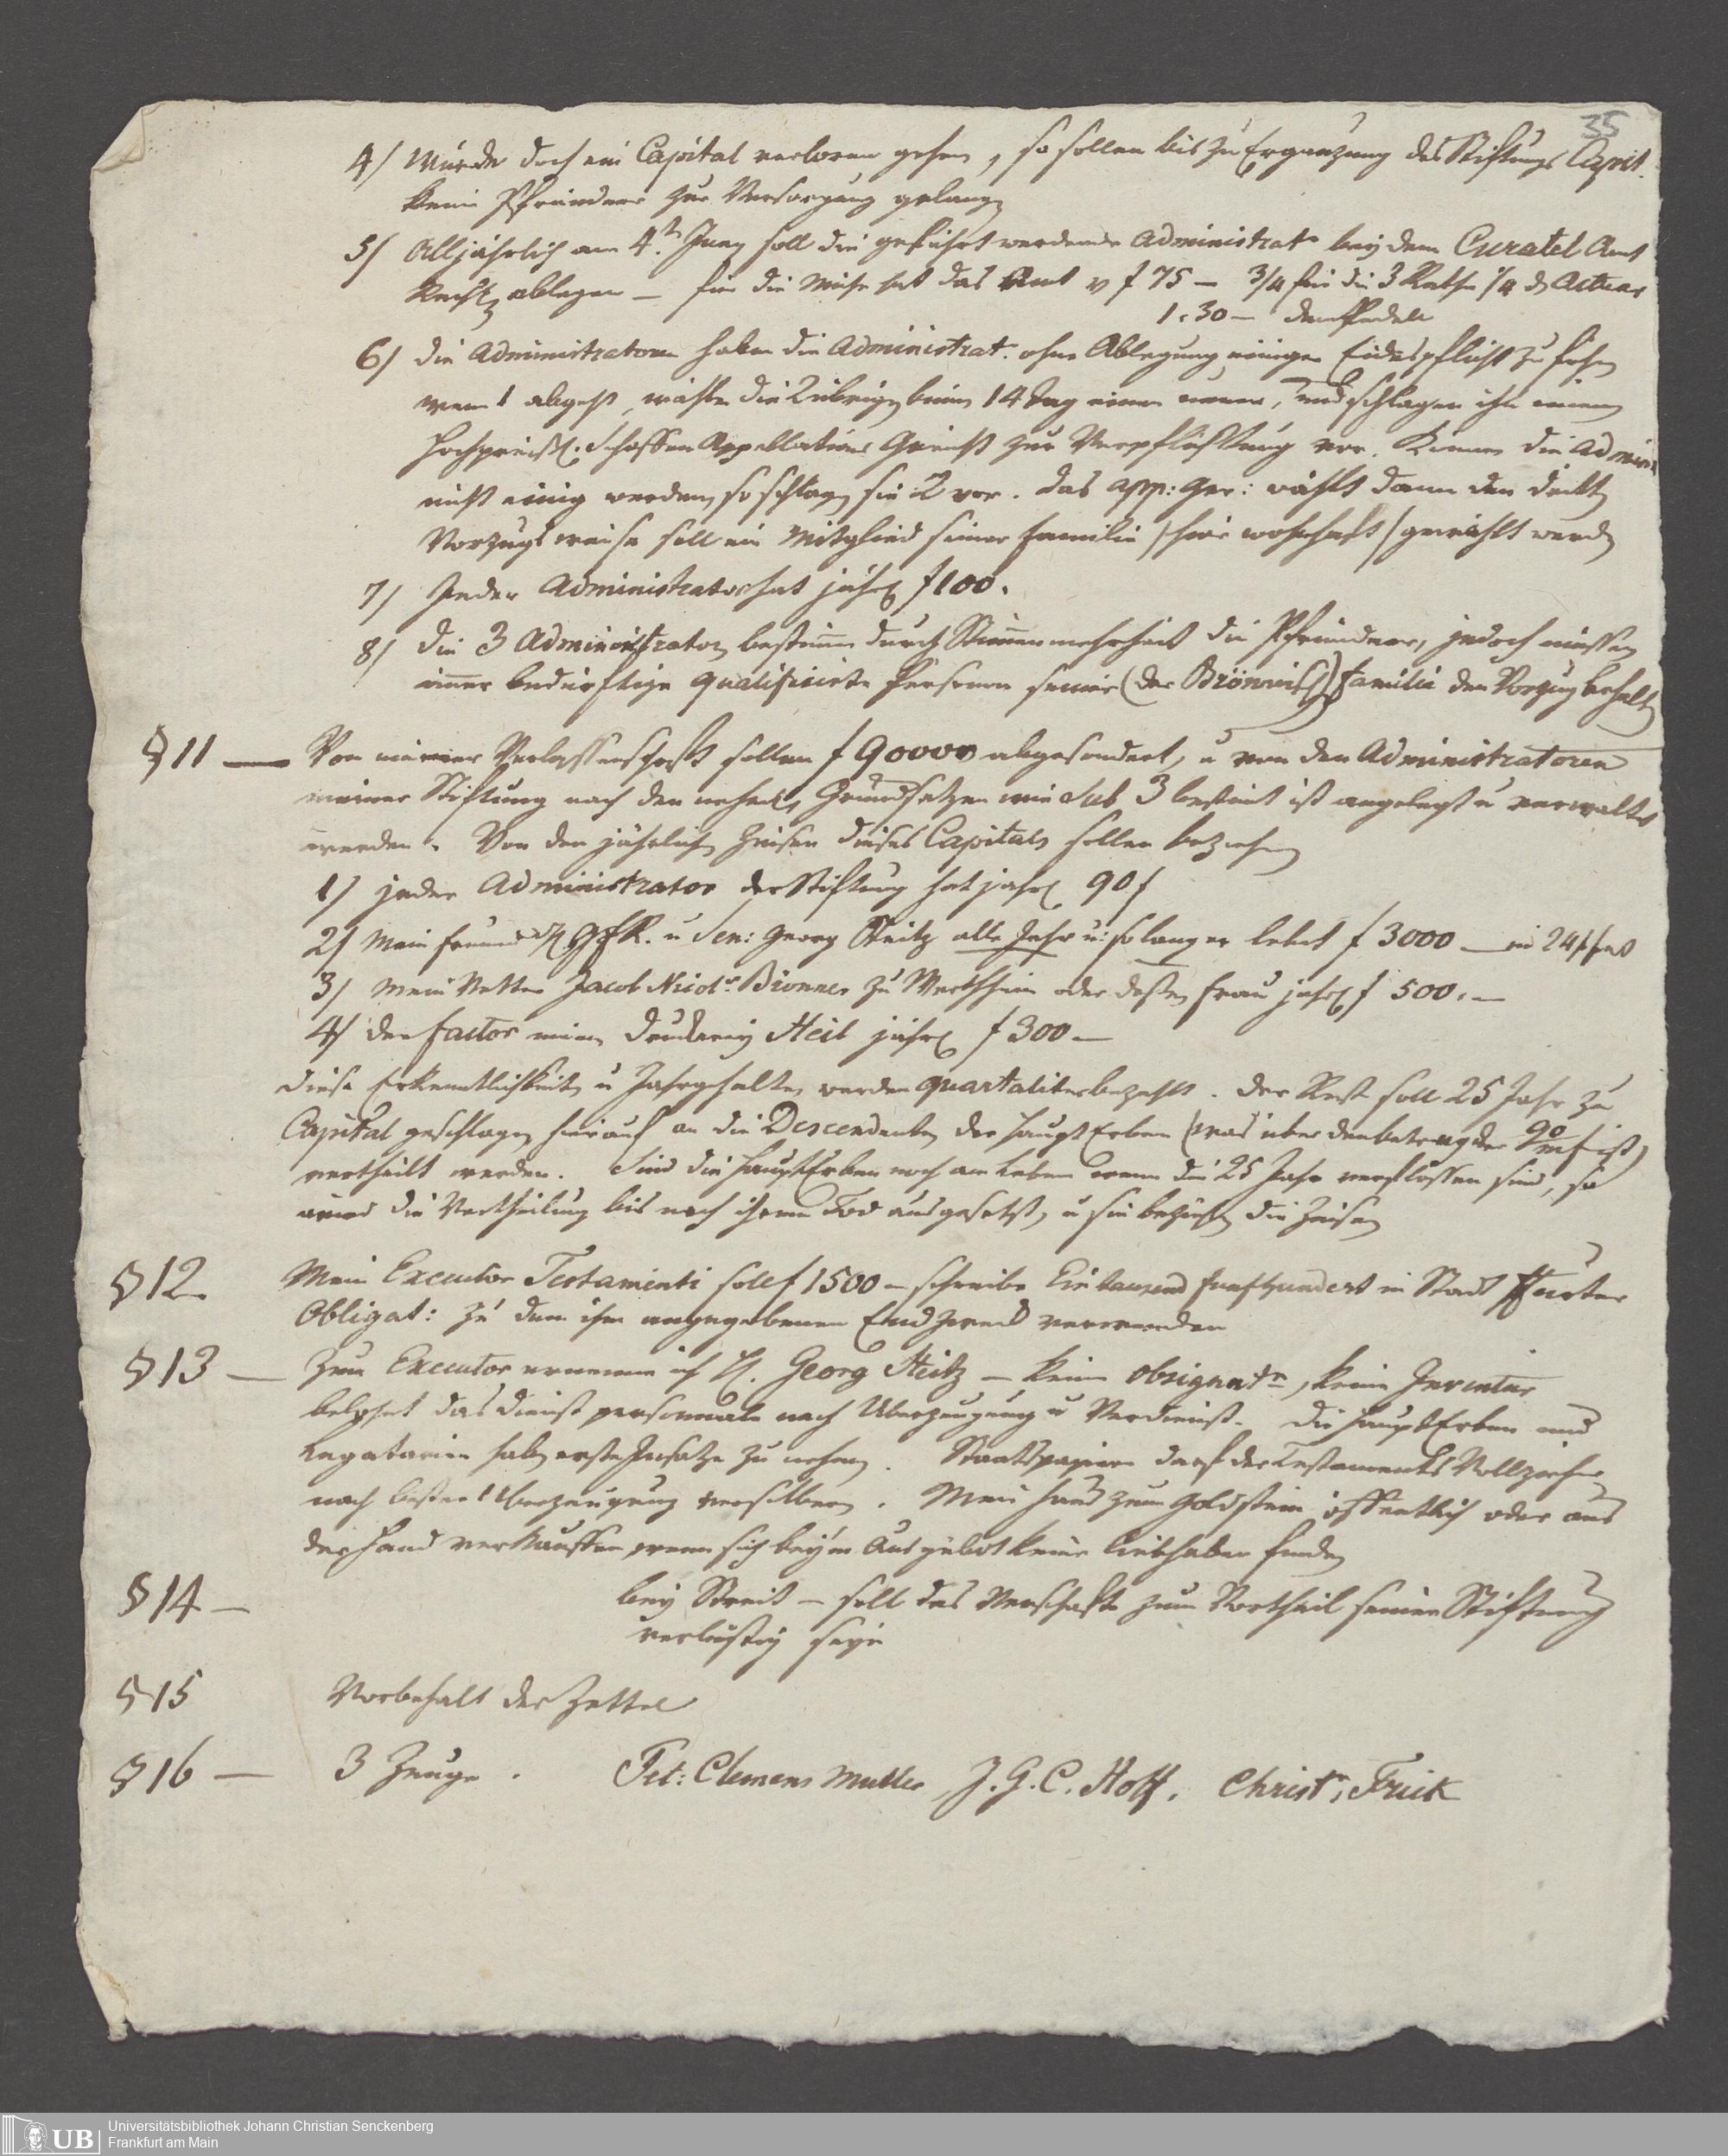 35
4) Würde doch ein Capital verloren gehen, so sollen bis zu Ergänzung des Stiftungs Capit.
keine Pfründner zur Versorgung gelangen
5) Alljährlich am 4ten Juny soll die geführt werdende Administrat. bey dem Curatel Amt
Rechn. ablegen — für die Mühe hat das Amt f 75 — 3/4 für die 3 Räthe 1/4 d Actuar
1.30 — dem Pedell
6) die Administratoren haben die Administrat. ohne Ablegung einiger Eidespflicht zu führen
wenn 1 abgeht, wählen die 2 übrigen binnen 14 Tag einen neuen, und schlagen ihn einem
Hochpreißl. Schöffen Appellations Gericht zur Verpflichtung vor. Können die Admini
nicht einig werden, so schlagen sie 2 vor. das App: Ger: wählt dann den dritten
Vorzugsweise soll ein Mitglied seiner Familie /hier wohnhaft/ gewählt werden
7) Jeder Administrator hat jährl. f 100.
8) die 3 Administrator. bestimen durch Stimenmehrheit die Pfründner, jedoch müssen
imer bedürftige qualificirte Personen seiner (der Brönnerisch) Familie den Vorzug behalten
§ 11 — Von meiner Verlassenschaft sollen f 90000 abgesondert, u von den Administratoren
meiner Stiftung nach den Grundsätzen wie Sub 3 bestimt ist angelegt u verwaltet
werden. Von den jährlichen Zinsen dieses Capitals sollen beziehen
1) jeder Administrator der Stiftung hat jährl. 90 f
2) Mein Freund H. u Sen: Georg Steitz alle Jahr u: so lang er lebet f 3000 — in 24
3) Mein Vetter Jacob Nicol. Brönner zu Wertheim oder dessen Frau jährl f 500. —
4) der Factor meiner Druckerey Heil jährl f 300 —
diese Erkenntlichkeiten u Jahrgehalte werden quartaliter bezahlt. der Rest soll 25 Jahr zu
Capital geschlagen hierauf an die Descendenten der Haupt Erben (was über den betrag der 90 m f ist)
vertheilt werden. Sind die Haupt Erben noch am Leben wenn die 25 Jahr verflossen sind, so
wird die Vertheilung bis nach ihrem Tod ausgesetzt, u sie beziehen die Zinsen
§ 12. Mein Executor Testamenti soll f 1500 — schreibe Ein tausend fünfhundert in Stadt Frfurter
Obligat: zu dem ihm angegebenen Endzweck verwenden
§ 13 — Zum Executor ernenne ich H. Georg Steitz — keine Obsignatn, keine Inventur
belohnet das Dienst personale nach Überzeugung u Verdienst. die Haupt Erben und
Legatarien haben erste Insätze zu nehmen. Staatspapiere darf der Testaments Vollzieher
nach bester Überzeugung versilbern. Mein Haus zum Goldstein öffentlich oder aus
der Hand verkauffen, wenn sich beym Ausgebot keine Liebhaber finden
§ 14 — bey Streit — soll das Vermachte zum Vortheil seiner Stiftung
verlustig seyn
§ 15 Vorbehalt der Zettel
§ 16 — 3 Zeuge. Pet: Clemens Müller J. G. C. Hoff. Christ., Frick
UB Universitätsbibliothek Johann Christian Senckenberg
Frankfurt am Main